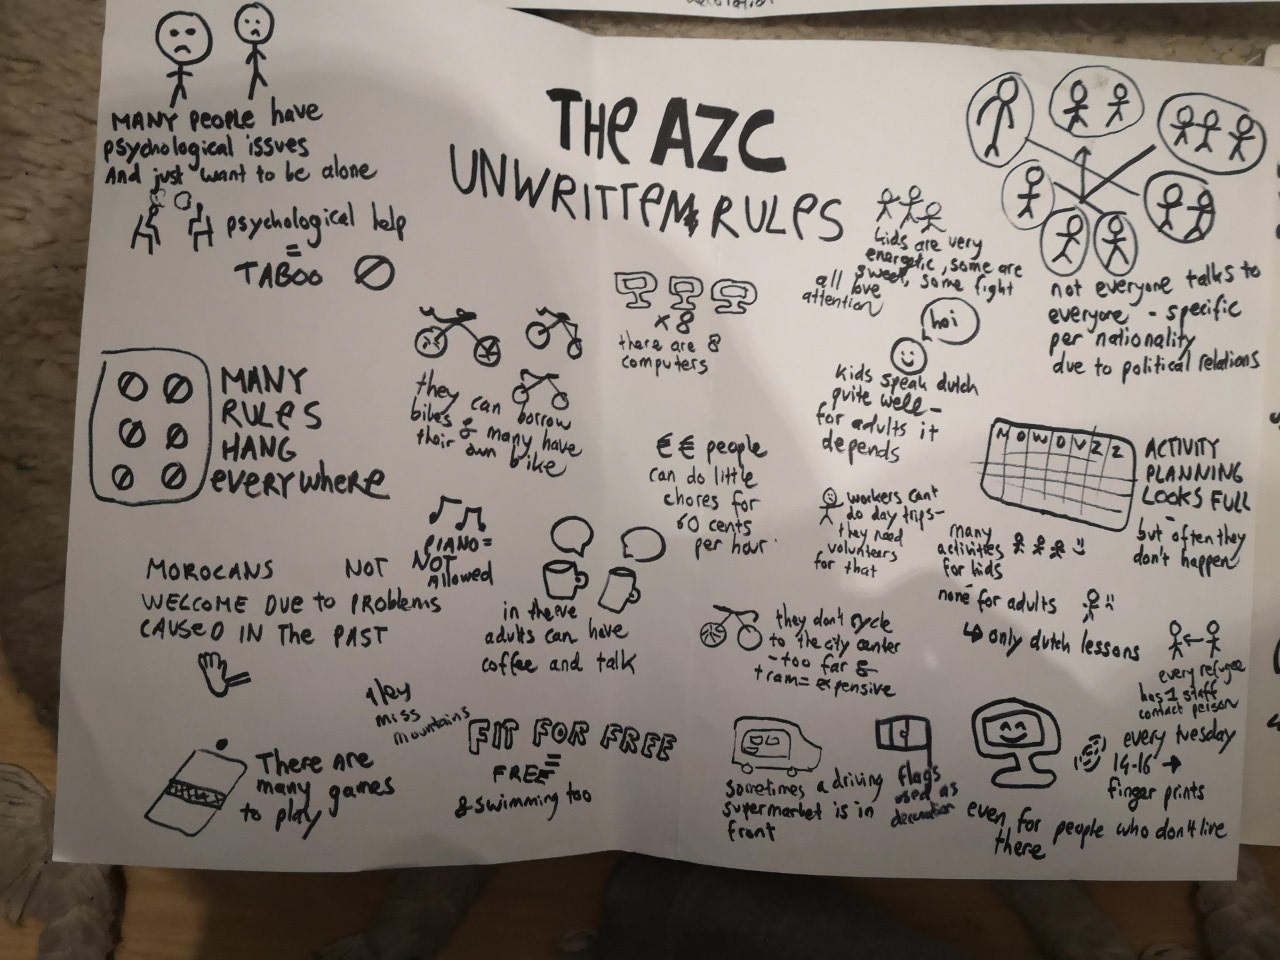 THE AZC
UNWRITTEN RULES
MANY People have
psychological issues
And just want to be alone
psychological help
=
TABOO
MANY
RULES
HANG
everywhere
they can borrow
bikes & many have
their own bike
x 8
there are 8
computers
kids are very
energetic, some are
sweet, some fight
all love
attention
hoi
kids speak dutch
quite well -
for adults it
depends
not everyone talks to
everyone - specific
per nationality
due to political relations
€ € people
can do little
chores for
60 cents
per hour
workers can't
do day trips -
they need
volunteers
for that
M D W D V Z Z
ACTIVITY
PLANNING
LOOKS FULL
-
but often they
don't happen
many
activities
for kids
none for adults
↳ only dutch lessons
PIANO =
NOT
Allowed
MOROCANS NOT
WELCOME DUE to PROBLEMS
CAUSED IN THE PAST
in there
adults can have
coffee and talk
they don't cycle
to the city center
- too far &
tram = expensive
every refugee
has 1 staff
contact person
they
miss
mountains
There are
many games
to play
FIT FOR FREE
=
FREE
& swimming too
Sometimes a driving
supermarket is in
front
flags
used as
decoration
every tuesday
14-16 →
finger prints
even for people who don't live
there